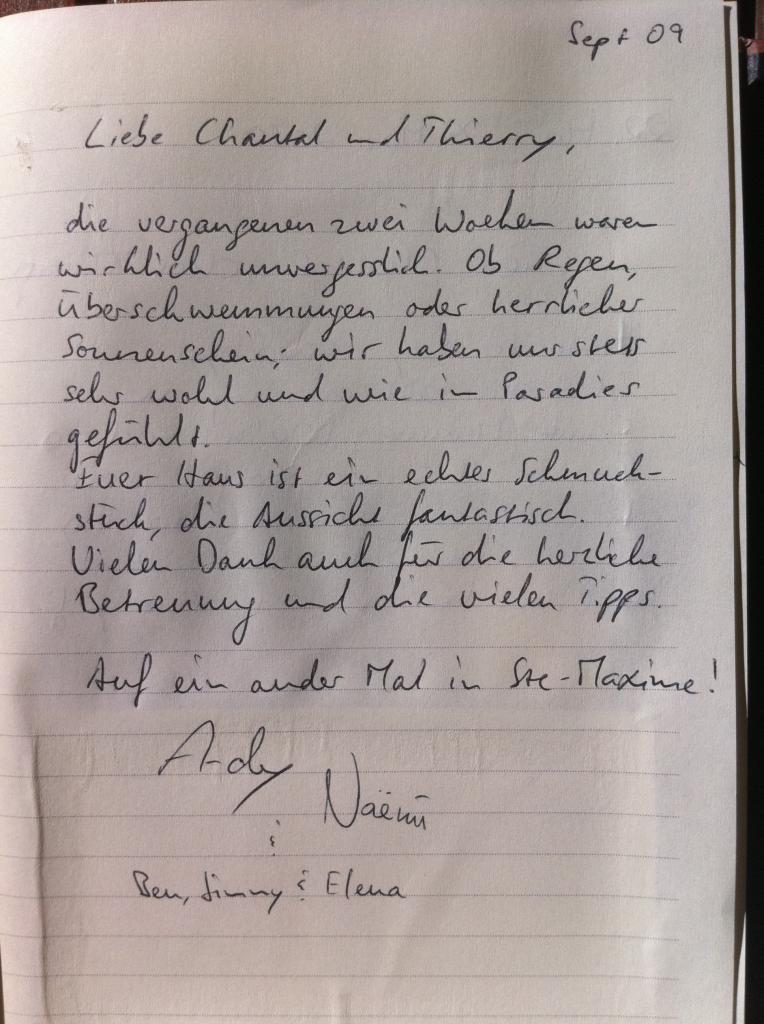 Sept 09
Liebe Chantal und Thierry,
die vergangenen zwei Wochen waren
wirklich unvergesslich. Ob Regen,
Überschwemmungen oder herrlicher
Sonnenschein; wir haben uns stets
sehr wohl und wie im Paradies
gefühlt.
Euer Haus ist ein echtes Schmuck-
stück, die Aussicht fantastisch.
Vielen Dank auch für die herzliche
Betreuung und die vielen Tipps.
Auf ein ander Mal in Ste-Maxime!
Andy
Naëmi
&
Ben, Jimmy & Elena